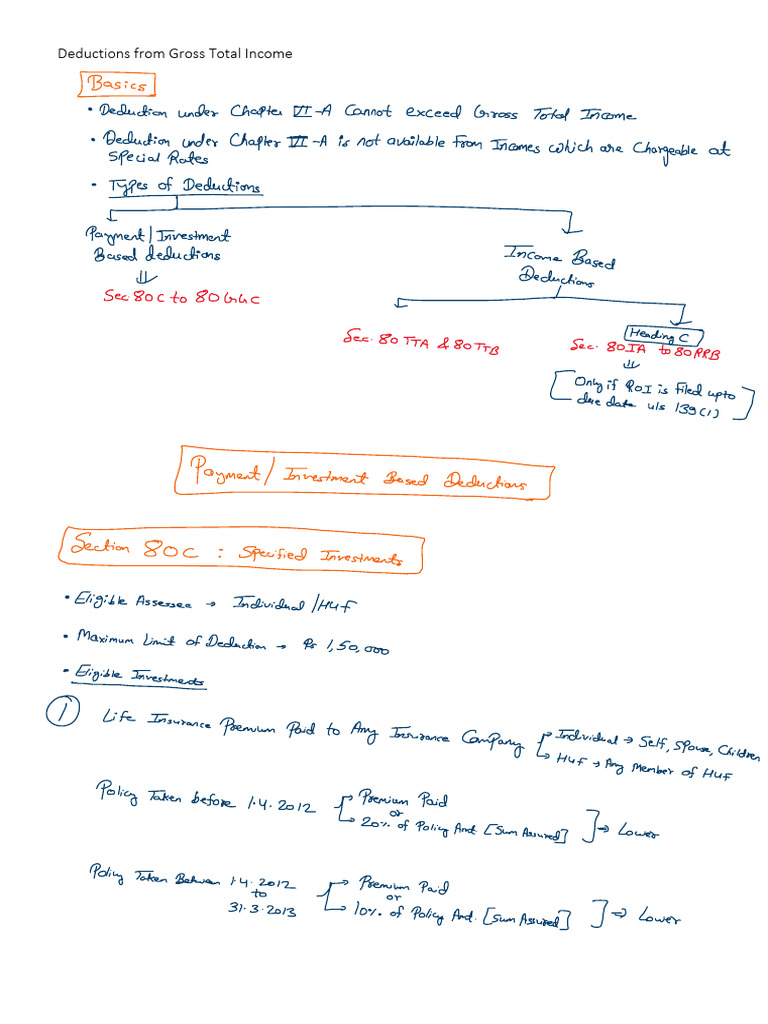 Deductions from Gross Total Income
Basics
• Deduction under Chapter VI-A Cannot exceed Gross Total Income
• Deduction under Chapter VI-A is not available from Incomes which are Chargeable at
Special Rates
• Types of Deductions
Payment/Investment
Based deductions
Sec 80C to 80GGC
Income Based
Deductions
Sec. 80TTA & 80TTB
Heading C
Sec. 80IA to 80RRB
[Only if ROI is filed upto
due date u/s 139(1)]
Payment/Investment Based Deductions
Section 80C : Specified Investments
• Eligible Assessee → Individual/HUF
• Maximum Limit of Deduction → Rs 1,50,000
• Eligible Investments
① Life Insurance Premium Paid to Any Insurance Company
Individual → Self, Spouse, Children
HUF → Any Member of HUF
Policy Taken before 1.4.2012
Premium Paid
or
20% of Policy Amt. [Sum Assured]
⇒ Lower
Policy Taken Between 1.4.2012
to
31.3.2013
Premium Paid
or
10% of Policy Amt. [Sum Assured]
⇒ Lower